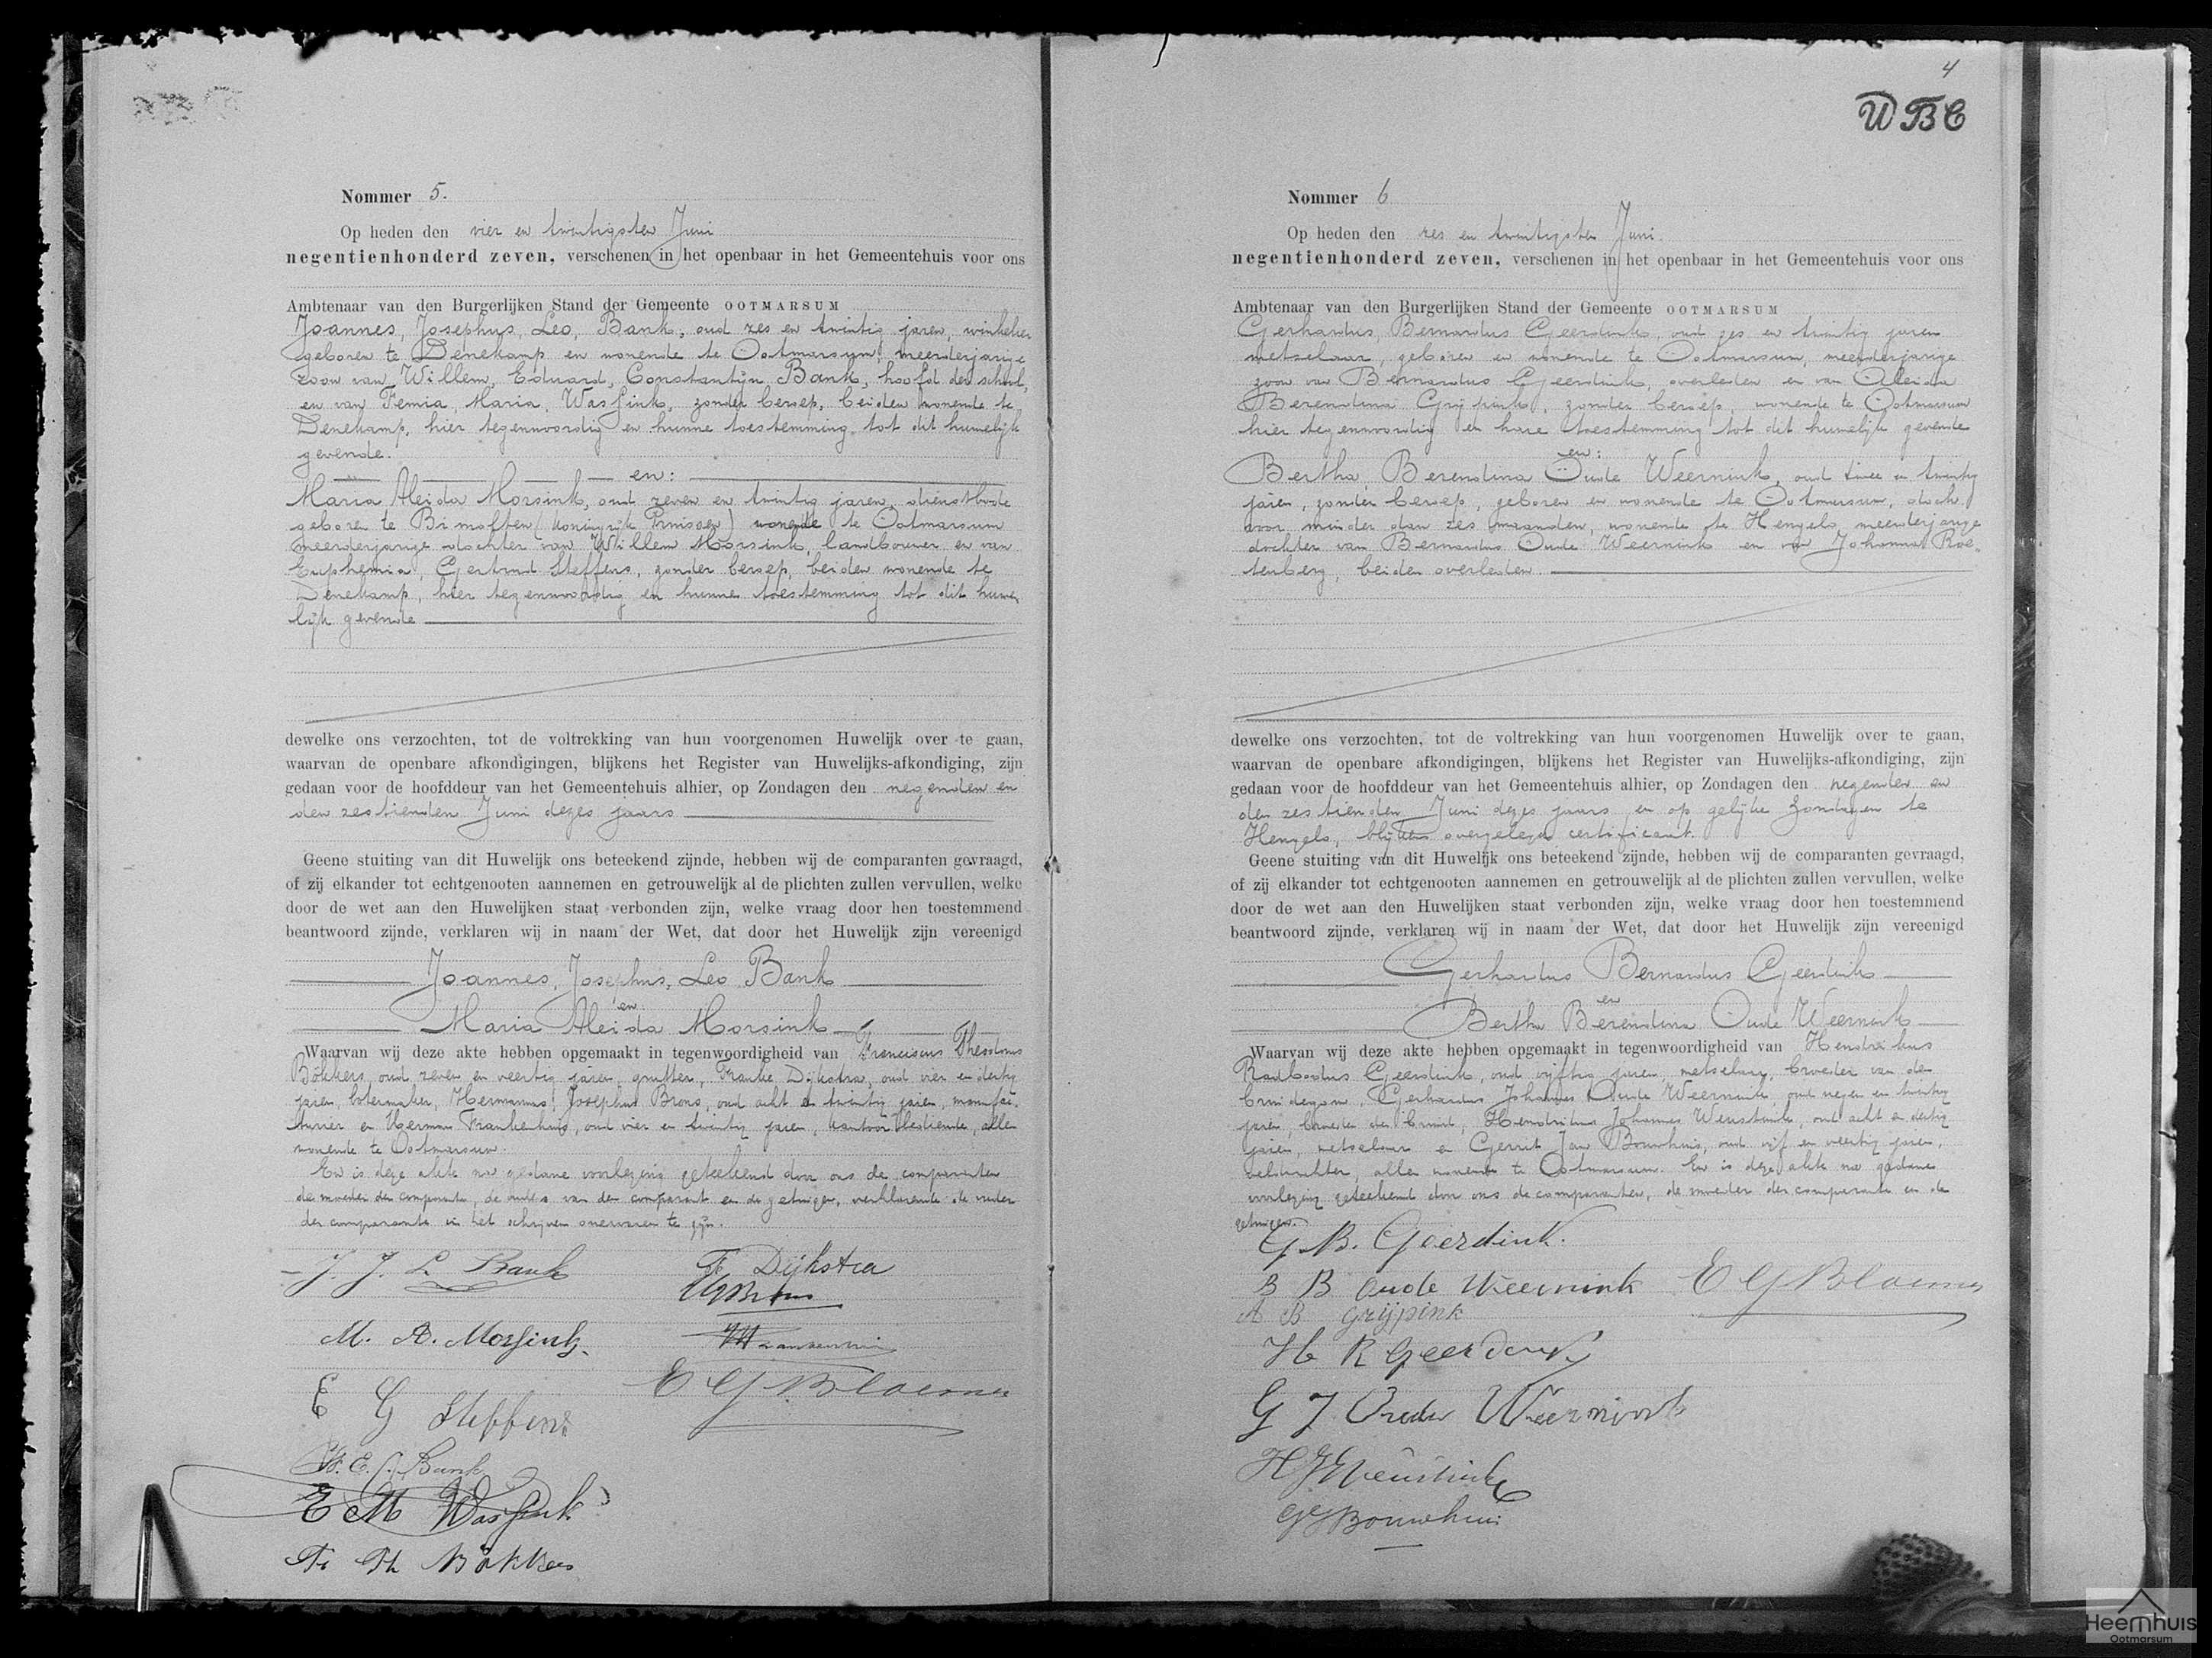 Nommer 5.
Op heden den vier en twintigsten Juni
negentienhonderd zeven, verschenen in het openbaar in het Gemeentehuis voor ons
Ambtenaar van den Burgerlijken Stand der Gemeente OOTMARSUM
Joannes, Josephus, Leo, Bank, oud zes en twintig jaren, winkelier
geboren te Denekamp en wonende te Ootmarsum, meerderjarige
zoon van Willem, Eduard, Constantijn Bank, hoofd der school,
en van Femia, Maria, Wasfink, zonder beroep, beiden wonende te
Denekamp, hier tegenwoordig en hunne toestemming tot dit huwelijk
gevende.
en:
Maria Aleida Morsink, oud zeven en twintig jaren, dienstbode
geboren te (Koningrijk Pruissen) wonende te Ootmarsum
meerderjarige dochter van Willem Morsink, landbouwer en van
Euphemia, Gertrud Steffens, zonder beroep, beiden wonende te
Denekamp, hier tegenwoordig en hunne toestemming tot dit huwe
lijk gevende
dewelke ons verzochten, tot de voltrekking van hun voorgenomen Huwelijk over te gaan,
waarvan de openbare afkondigingen, blijkens het Register van Huwelijks-afkondiging, zijn
gedaan voor de hoofddeur van het Gemeentehuis alhier, op Zondagen den negenden en
den zestienden Juni dezes jaars
Geene stuiting van dit Huwelijk ons beteekend zijnde, hebben wij de comparanten gevraagd,
of zij elkander tot echtgenooten aannemen en getrouwelijk al de plichten zullen vervullen, welke
door de wet aan den Huwelijken staat verbonden zijn, welke vraag door hen toestemmend
beantwoord zijnde, verklaren wij in naam der Wet, dat door het Huwelijk zijn vereenigd
Joannes, Josephus, Leo Bank
en
Maria Aleida Morsink
Waarvan wij deze akte hebben opgemaakt in tegenwoordigheid van Franciscus Theodorus
Bökkers oud zeven en veertig jaren, grutter, Franke Dijkstra, oud vier en dertig
jaren, botermaker, Hermannus Josephus Brons, oud acht en twintig jaren, manufac.
turier en Herman Frankenhuis, oud vier en twintig jaren, kantoorbediende, allen
wonende te Ootmarsum.
En is deze akte na gedane voorlezing geteekend door ons de comparanten
de moeder der comparante, de ouders van den comparant en de getuigen, verklarende de vader
der comparante in het schrijven onervaren te zijn.
J. J. L. Bank
F. Dijkstra
HJBrons
M. A. Morsink.
E G Steffens
E G Bloemen
W. E. C. Bank
F M Wasfink
Fr Th Bökkers
4
WBC
Nommer 6
Op heden den zes en twintigsten Juni.
negentienhonderd zeven, verschenen in het openbaar in het Gemeentehuis voor ons
Ambtenaar van den Burgerlijken Stand der Gemeente OOTMARSUM
Gerhardus Bernardus Geerdink, oud zes en twintig jaren
metselaar, geboren en wonende te Ootmarsum, meerderjarige
zoon van Bernardus Geerdink, overleden en van Aleida
Berendina Grijpink, zonder beroep, wonende te Ootmarsum
hier tegenwoordig en hare toestemming tot dit huwelijk gevende
en:
Bertha Berendina Oude Weernink, oud twee en twintig
jaren, zonder beroep, geboren en wonende te Ootmarsum, doch
voor minder dan zes maanden wonende te Hengelo, meerderjarige
dochter van Bernardus Oude Weernink en van Johanna Roe-
tenberg, beiden overleden.
dewelke ons verzochten, tot de voltrekking van hun voorgenomen Huwelijk over te gaan,
waarvan de openbare afkondigingen, blijkens het Register van Huwelijks-afkondiging, zijn
gedaan voor de hoofddeur van het Gemeentehuis alhier, op Zondagen den negenden en
den zestienden Juni dezes jaars en op gelijke Zondagen te
Hengelo, blijkens overgelegd certificaat.
Geene stuiting van dit Huwelijk ons beteekend zijnde, hebben wij de comparanten gevraagd,
of zij elkander tot echtgenooten aannemen en getrouwelijk al de plichten zullen vervullen, welke
door de wet aan den Huwelijken staat verbonden zijn, welke vraag door hen toestemmend
beantwoord zijnde, verklaren wij in naam der Wet, dat door het Huwelijk zijn vereenigd
Gerhardus Bernardus Geerdink
en
Bertha Berendina Oude Weernink
Waarvan wij deze akte hebben opgemaakt in tegenwoordigheid van Hendrikus
Radbodus Geerdink, oud vijftig jaren, metselaar, broeder van den
bruidegom, Gerhardus Johannes Oude Weernink, oud negen en twintig
jaren, broeder der bruid, Hendrikus Johannes Weustink, oud acht en dertig
jaren, metselaar en Gerrit Jan Bouwhuis, oud vijf en veertig jaren,
veldwachter, allen wonende te Ootmarsum. En is deze akte na gedane
voorlezing geteekend door ons de comparanten, de moeder der comparante en de
getuigen.
G. B. Geerdink.
B B oude Weernink
E G Bloemen
A B Grijpink
H R Geerdink
G J Oude Weernink
H J Weustink
GJBouwhuis
Heemhuis
Ootmarsum